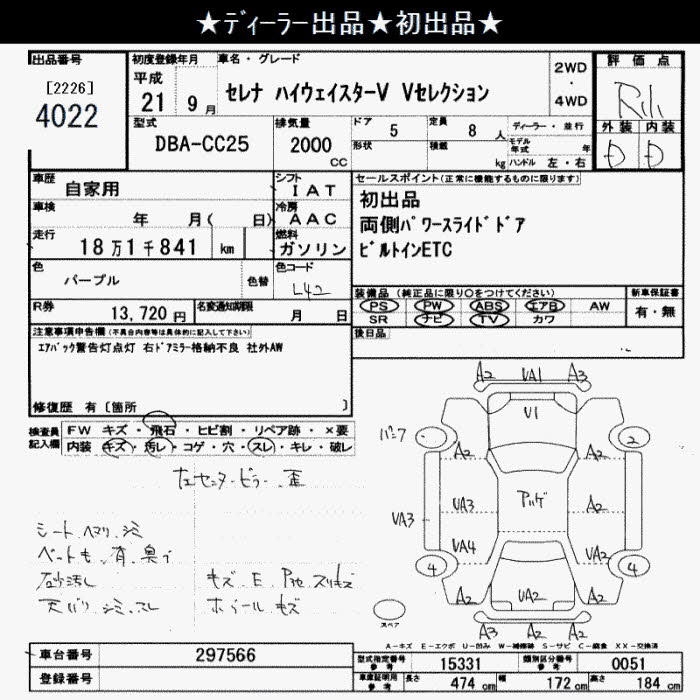 ★ディーラー出品★初出品★
出品番号
[2226]
4022
初度登録年月
平成
21 9月
車名・グレード
セレナ ハイウェイスターV Vセレクション
2WD
・
4WD
評価点
外装 内装
D D
型式
DBA-CC25
排気量
2000
CC
ドア 5
定員 8 人
形状
積載 kg
ディーラー・並行
モデル年式 年
ハンドル 左・右
車歴 自家用
シフト IAT
車検 年 月( 日)
冷房 AAC
走行 18万1千841 km
燃料 ガソリン
色 パープル
色替
色コード L42
R券 13,720円
名変通知期限 月 日
セールスポイント(正常に機能するものに限ります)
初出品
両側パワースライドドア
ビルトインETC
装備品(純正品に限り○をつけてください)
PS PW ABS エアB AW
SR ナビ TV カワ
新車保証書
有・無
後日品
注意事項申告欄(不具合内容等は具体的に記入して下さい)
エアバック警告灯点灯 右ドアミラー格納不良 社外AW
修復歴 有[箇所 ]
検査員記入欄
FW キズ・飛石・ヒビ割・リペア跡・×要
内装 キズ・汚レ・コゲ・穴・スレ・キレ・破レ
シート ヘタリ シミ
天バリ シミ スレ
ホイール キズ
A2 UA1 A3
U1
A2 A2
2
UA3 UA3 A2
UA4 UA2
4 4
A2 UA2 A2
A3 A2 A2
スペア
A-キズ E-エクボ U-凹ミ W-補修跡 S-サビ C-腐食 XX-交換済
車台番号 297566
登録番号
型式指定番号 参考 15331
類別区分番号 参考 0051
車庫証明用 参考 長さ 474 cm 幅 172 cm 高さ 184 cm